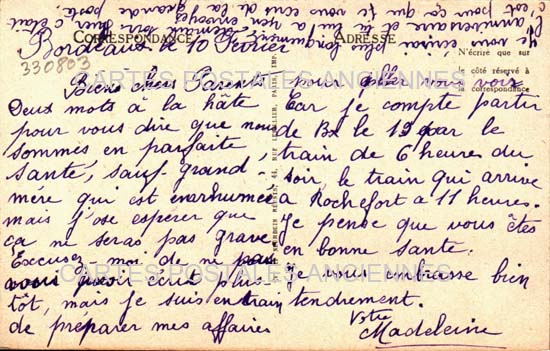 CORRESPONDANCE
ADRESSE
N'écrire que sur
le côté réservé à
la correspondance
330803
Bordeaux le 10 Février
Biens chers Parents
Deux mots à la hâte
pour vous dire que nous
sommes en parfaite
santé, sauf grand-
mère qui est enrhumée
mais j'ose espérer que
ça ne seras pas grave
Excusez-moi de ne pas
vous avoir écris plus
tôt, mais je suis en train
de préparer mes affaires
pour aller vous voir
Car je compte partir
de Bx le 19 par le
train de 6 heures du
soir, le train qui arrive
à Rochefort à 11 heures.
Je pense que vous êtes
en bonne santé.
Je vous embrasse bien
tendrement.
Votre
Madeleine
je vous écrirai plus longuement
anniversaire et tu
c'est pour ça que
vous envoyez
grande porte
CARTES POSTALES ANCIENNES
CARTES POSTALES ANCIENNES